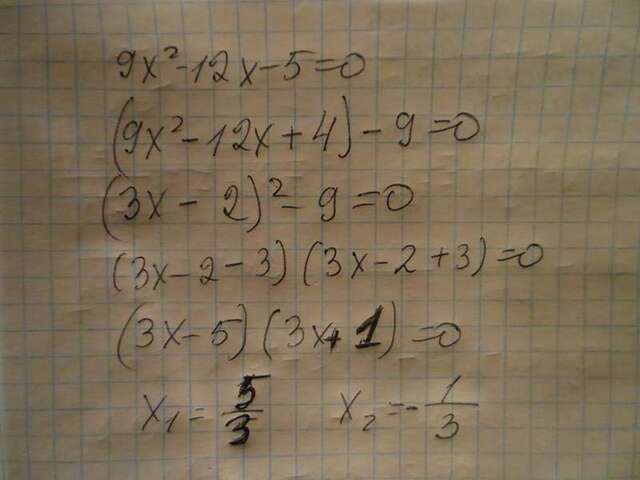 9x²-12x-5=0
(9x²-12x+4)-9=0
(3x-2)²-9=0
(3x-2-3)(3x-2+3)=0
(3x-5)(3x+1)=0
x₁=5/3 x₂=-1/3